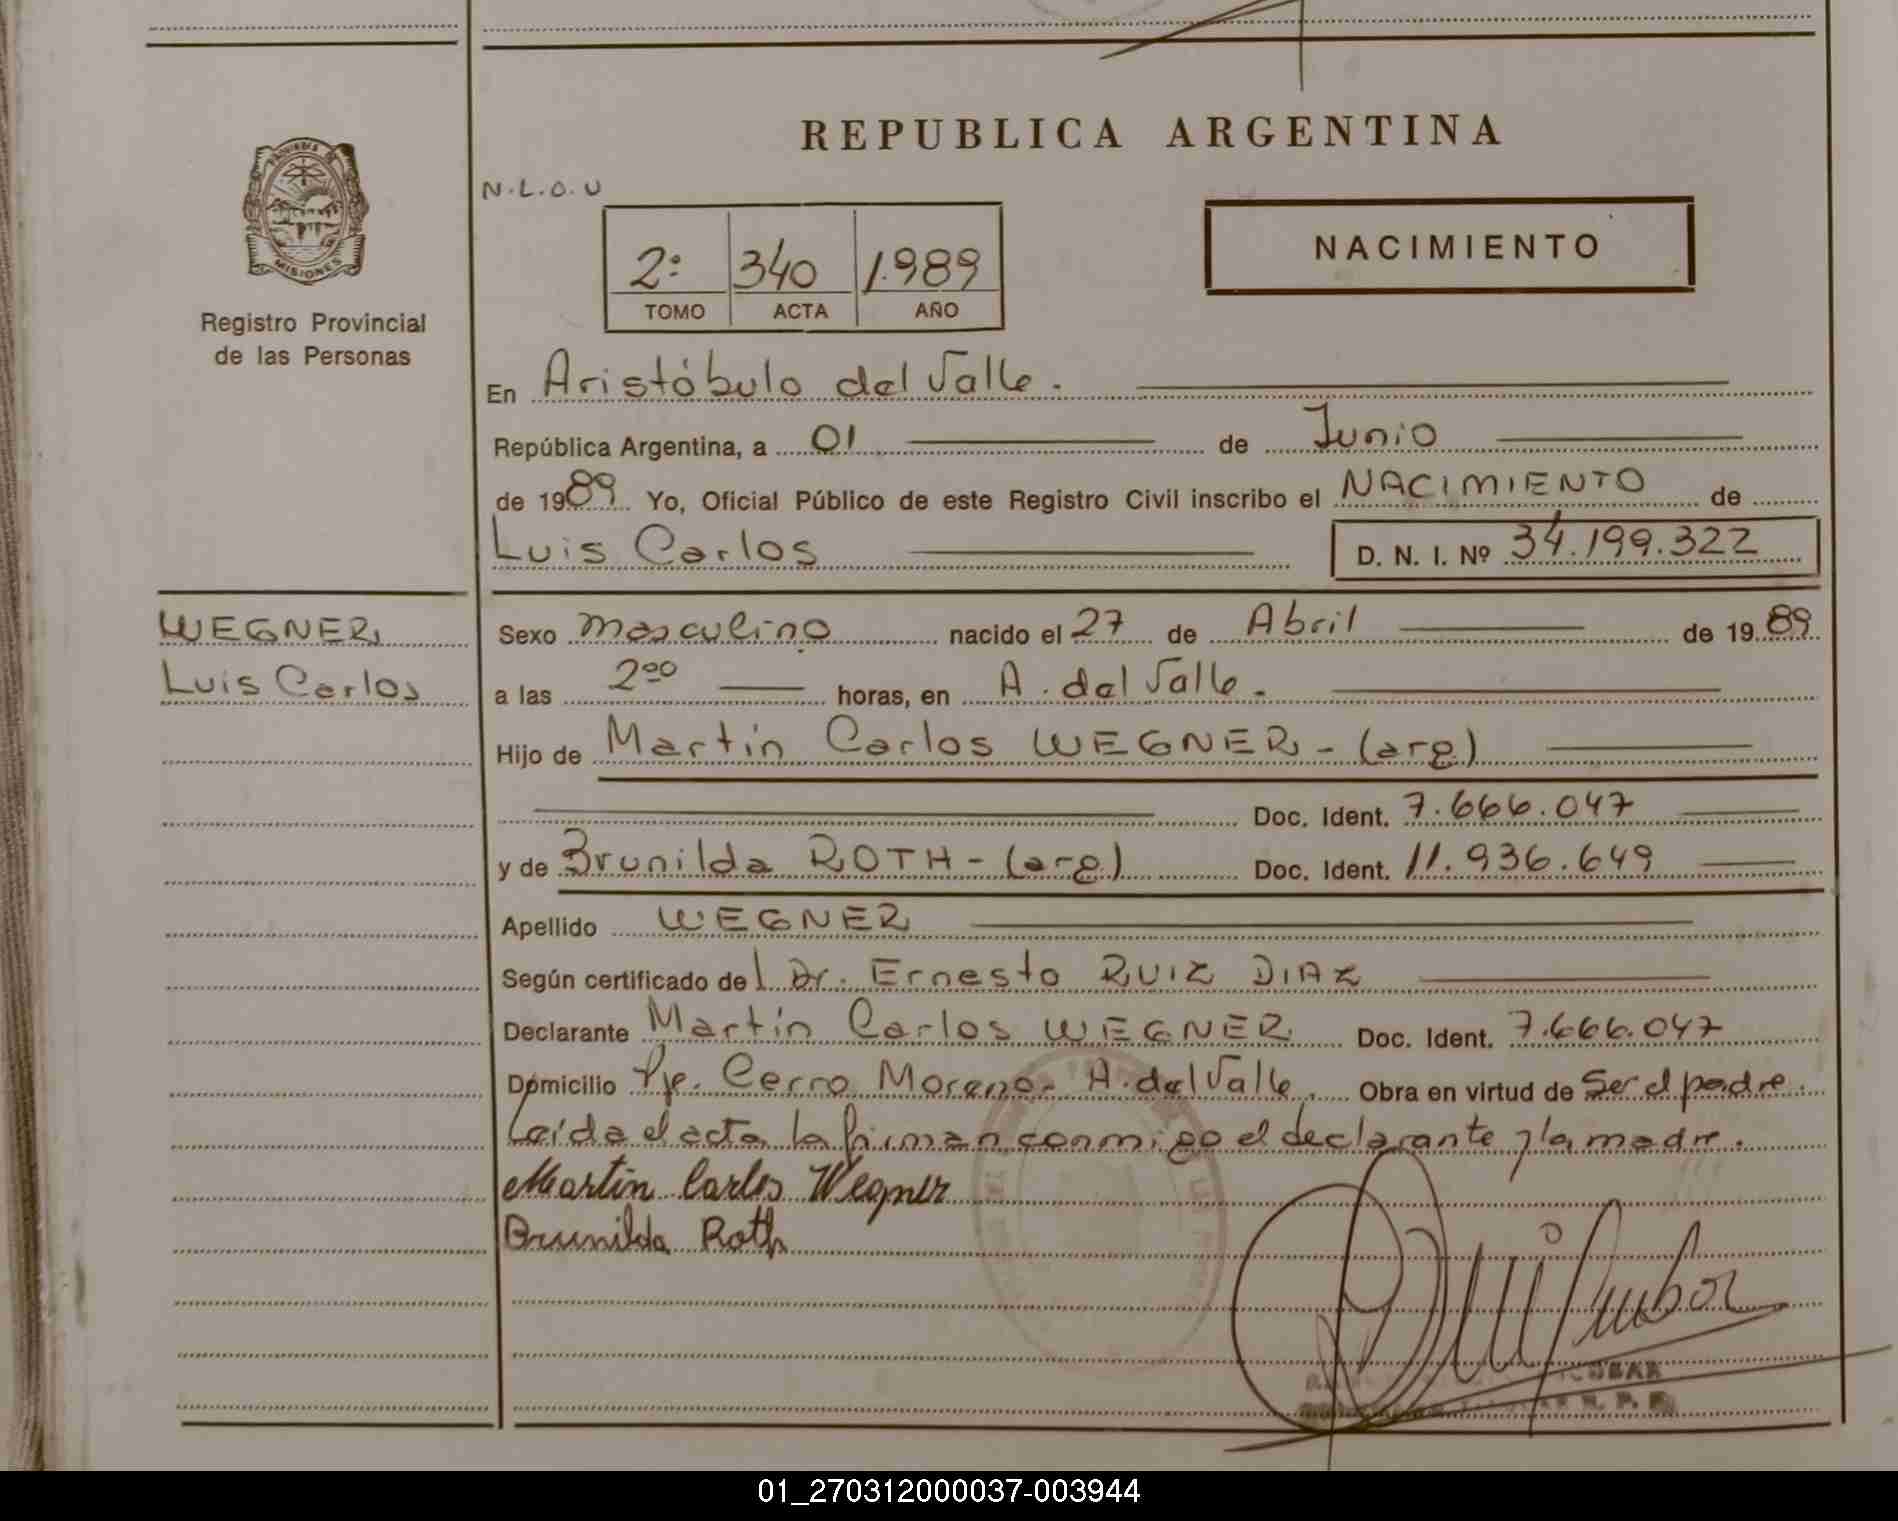 REPUBLICA ARGENTINA
PROVINCIA DE
MISIONES
Registro Provincial
de las Personas
N.L.O.U
2º 340 1.989
TOMO ACTA AÑO
NACIMIENTO
En Aristóbulo del Valle.
República Argentina, a 01 de Junio
de 1989 Yo, Oficial Público de este Registro Civil inscribo el NACIMIENTO de
Luis Carlos D. N. I. Nº 34.199.322
WEGNER
Luis Carlos
Sexo masculino nacido el 27 de Abril de 1989
a las 2⁰⁰ horas, en A. del Valle.
Hijo de Martín Carlos WEGNER - (arg)
Doc. Ident. 7.666.047
y de Brunilda ROTH - (arg) Doc. Ident. 11.936.649
Apellido WEGNER
Según certificado del Dr. Ernesto RUIZ DIAZ
Declarante Martín Carlos WEGNER Doc. Ident. 7.666.047
Domicilio Pje. Cerro Moreno - A. del Valle. Obra en virtud de Ser el padre.
Leída el acta la firman conmigo el declarante y la madre.
Martin Carlos Wegner
Brunilda Roth
ESCOBAR
R. P. P.
01_270312000037-003944